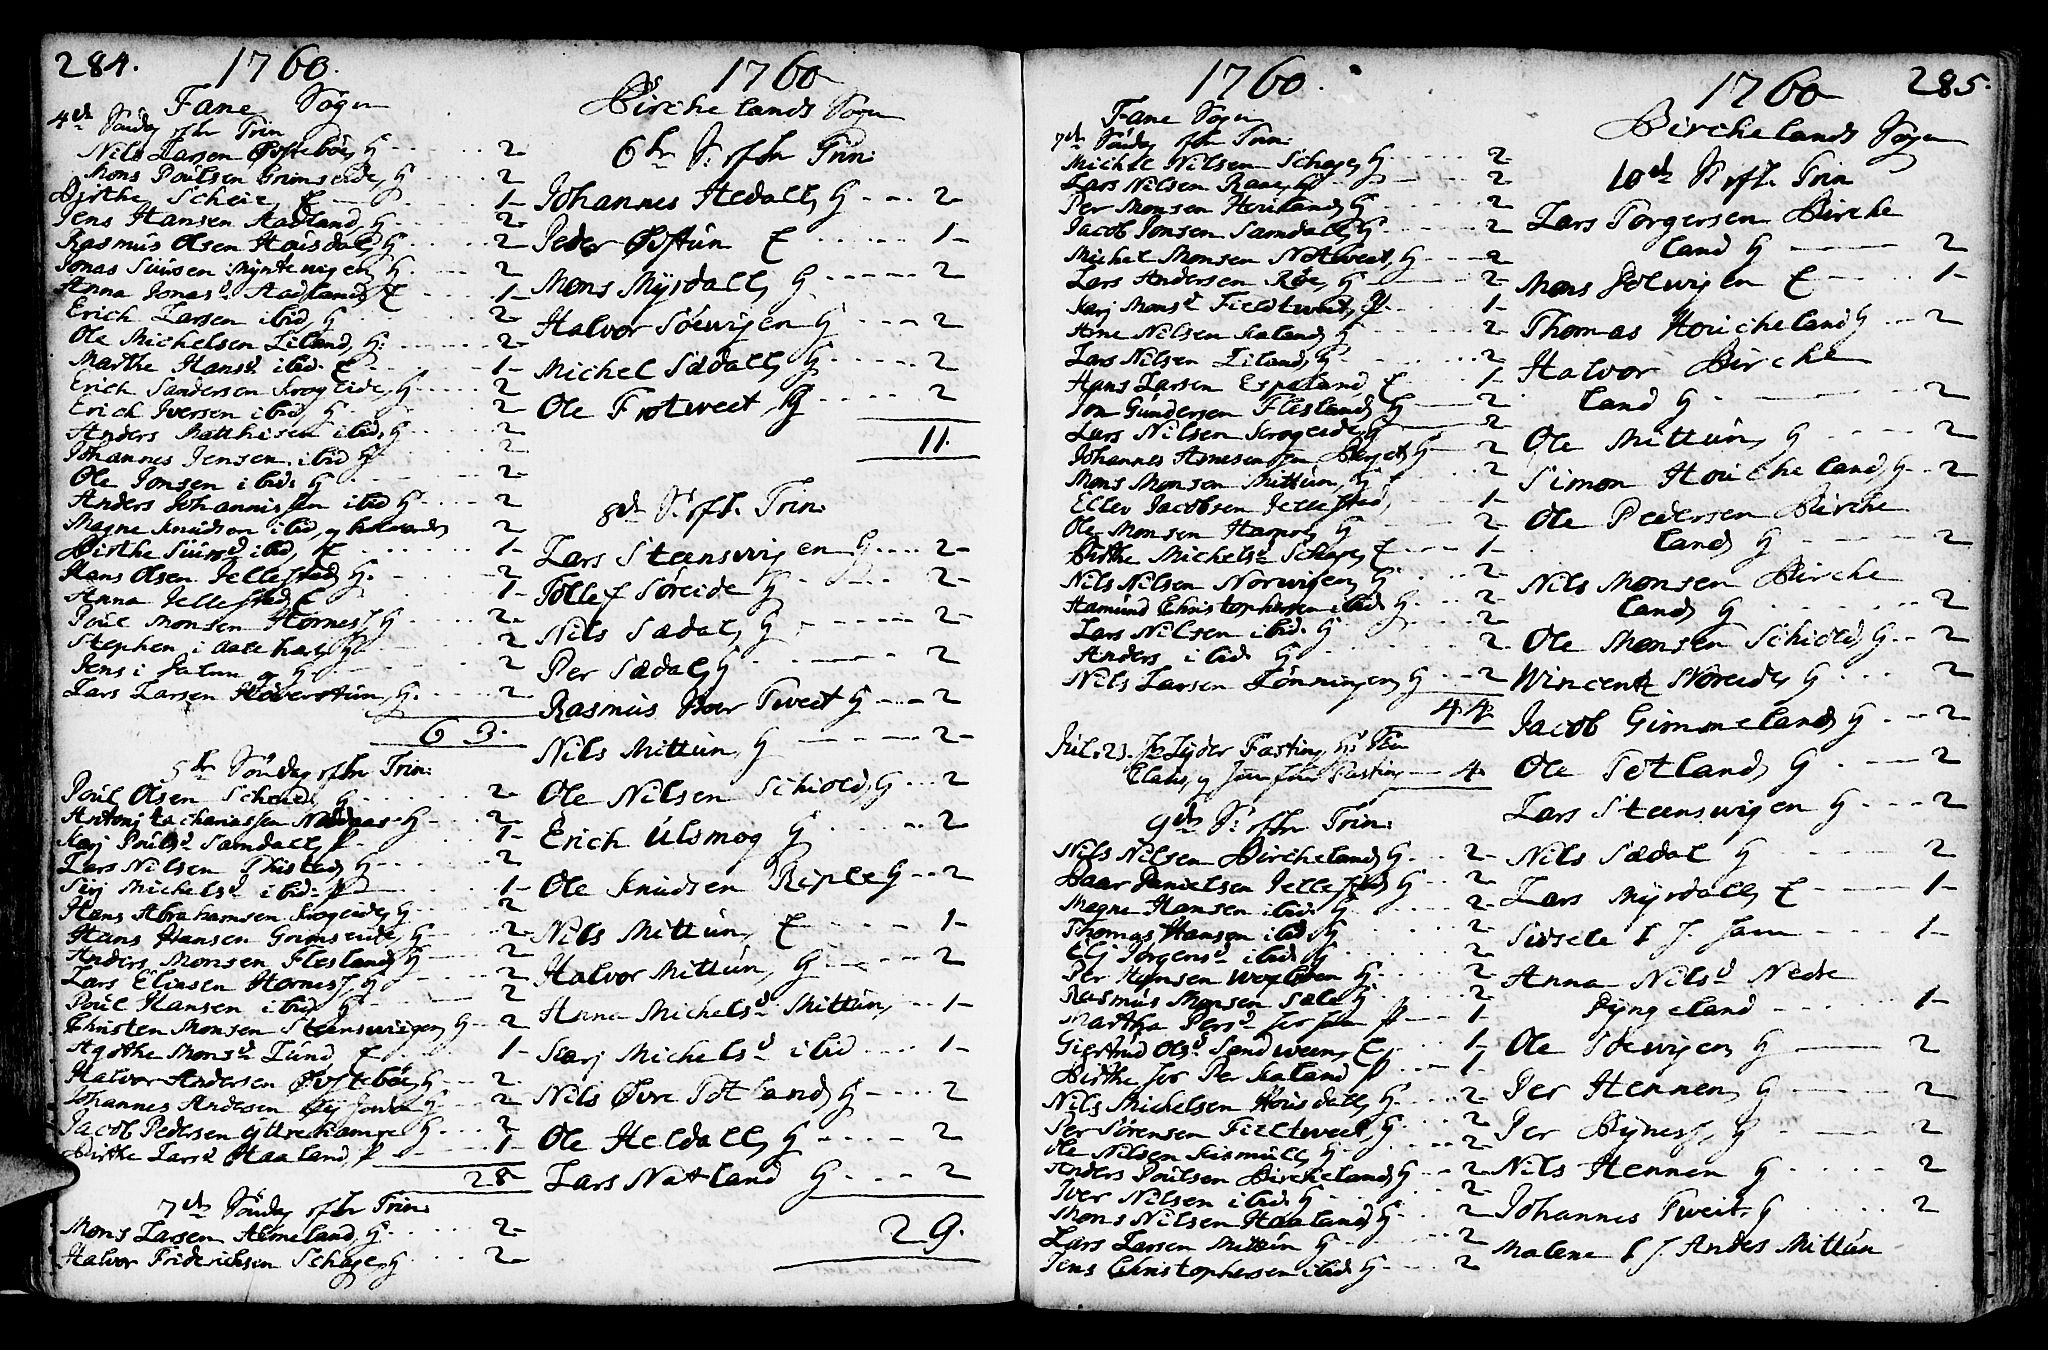 284. 1760.
Fane Sogn
4de Søndag efter Trin
Nils Larsen Østebøe, G - 2
Mons Poulsen Grimseide, G - 2
Birthe Scheie, E - 1
Jens Hansen Aadland, G - 2
Rasmus Olsen Housdal, G - 2
Jonas Siursen Myntewigen, G - 2
Anna Jonasd. Aadland, E - 1
Erich Larsen ibid G - 2
Ole Michelsen Liland, G - 2
Marthe Hansd ibid. E - 1
Erich Sandersen Krogeide, G - 2
Erich Iversen ibid, G - 2
Anders Matthisen ibid, G - 2
Johannes Jensen ibid G - 2
Ole Jonsen ibid: G - 2
Anders Johannissen ibid G - 2
Magne Knudsen ibid, - 2
Birthe Siursd ibid, E - 1
Hans Olsen Jellestad, G - 2
Anna Jellestad, E - 1
Poul Monsen Hornes, G - 2
Stephen i G - 2
Jens i G - 2
Lars Larsen Høverstun, G - 2
63.
5te Søndag efter Trin:
Poul Olsen Scheie, G - 2
Antoni Zachariassen G - 2
Kari Poulsd Samdall, P - 1
Lars Nilsen Thistad, G - 2
Siri Michelsd ibid: P - 1
Hans Abrahamsen Krogeide, G - 2
Hans Hansen Grimseide, G - 2
Anders Monsen Flesland, G - 2
Lars Eliasen Hornes, G - 2
Poul Hansen ibid G - 2
Christen Monsen Steenswigen, G - 2
Agothe Monsd Lund, E - 1
Halvor Andersen Østebøe, G - 2
Johannes Andesen G - 2
Jacob Pedersen Yttrehamre G - 2
Birthe Larsd Haaland, P - 1
28
7de Søndag efter Trin:
Mons Larsen Helmeland, G - 2
Halvor Friderichsen Schage, G - 2
1760
Birchelands Sogn
6te S: efter Trin:
Johannes Hedall, G - 2
Peder Øvstun E - 1
Mons Myrdall, G - 2
Halvor Søevigen G - 2
Michel Sædall, G - 2
Ole Frotweet, G - 2
11.
8de S: eft. Trin:
Lars Steenswigen G - 2
Tollef Søreide G - 2
Nils Sædal, G - 2
Per Sædal, G - 2
Rasmus Boer Tweit G - 2
Nils Mittun, G - 2
Ole Nilsen Schiold, G - 2
Erich Ulsmog G - 2
Ole Knudsen Riple G - 2
Nils Mittun, E - 1
Halvor Mittun, G - 2
Anna Michelsd Mittun, - 1
Karj Michelsd ibid - 1
Nils Øvre Totland, G - 2
Ole Heldall, G - 2
Lars Natland G - 2
29.
1760.
Fane Sogn
7de Søndag efter Trin:
Michel Nilsen Schage, G - 2
Lars Nilsen Rane, G - 2
Per Monsen Heriland, G - 2
Jacob Jonsen Samdall, G - 2
Michel Monsen Notweet, G - 2
Lars Andersen Røe, G - 2
Karj Monsd Fieldtweit, P - 1
Arne Nilsen Kaland, G - 2
Lars Nilsen Liland, G - 2
Hans Larsen Espeland, E - 1
Jon Gundersen Flesland, G - 2
Lars Nilsen Krogeide, G - 2
Johannes Arnesen paa Berget, G - 2
Mons Monsen Mittun, G - 2
Ellev Jacobsen Jellestad, - 1
Ole Monsen Hamre, G - 2
Birthe Michelsd Schage, E - 1
Nils Nilsen Norwigen, G - 2
Hamund Christophersen ibid, G - 2
Lars Nilsen ibid. G - 2
Anders ibid G - 2
Nils Larsen Lønningen, G - 2
44
Jul. 23. Lyder Fasting, Hr:
Claus, og Fasting - 4.
9de S: efter Trin:
Nils Nilsen Bircheland, G - 2
Baar Danielsen Jellestad, G - 2
Magne Hansen ibid G - 2
Thomas Hansen ibid, G - 2
Eli Jørgensd ibid, G - 2
Per Hansen G - 2
Rasmus Monsen Sæle, G - 2
Martha Persd P - 1
Giertrud Olsd Sandween, E - 1
Birthe Per Kaland P - 1
Nils Michelsen Housdall, G - 2
Per Sørensen Fieltweet, G - 2
Ole Nilsen G - 2
Anders Poulsen Bircheland, G - 2
Iver Nilsen ibid, G - 2
Mons Nilsen Haaland, G - 2
Lars Larsen Mittun G - 2
Jens Christophersen ibid G - 2
1760 285.
Birchelands Sogn
10de S: eft. Trin
Lars Torgersen Birche
land G - 2
Mons Solwigen E - 1
Thomas Houcheland, G - 2
Halvor Birche
land G - 2
Ole Mittun, G - 2
Simon Houcheland, G - 2
Ole Pedersen Birche
land, G - 2
Nils Monsen Birche
land, G - 2
Ole Monsen Schiold, G - 2
Wincent Noreide, G - 2
Jacob Gimmeland, G - 2
Ole Totland, G - 2
Lars Steenswigen G - 2
Nils Sædal G - 2
Lars Myrdall, E - 1
Sidsele - 1
Anna Nilsd Nedre
Dyngeland - 1
Ole Søevigen, G - 2
Per Hennen, G - 2
Per Bynes, G - 2
Nils Hennen G - 2
Johannes Tweit, G - 2
Malene Andes Mittun